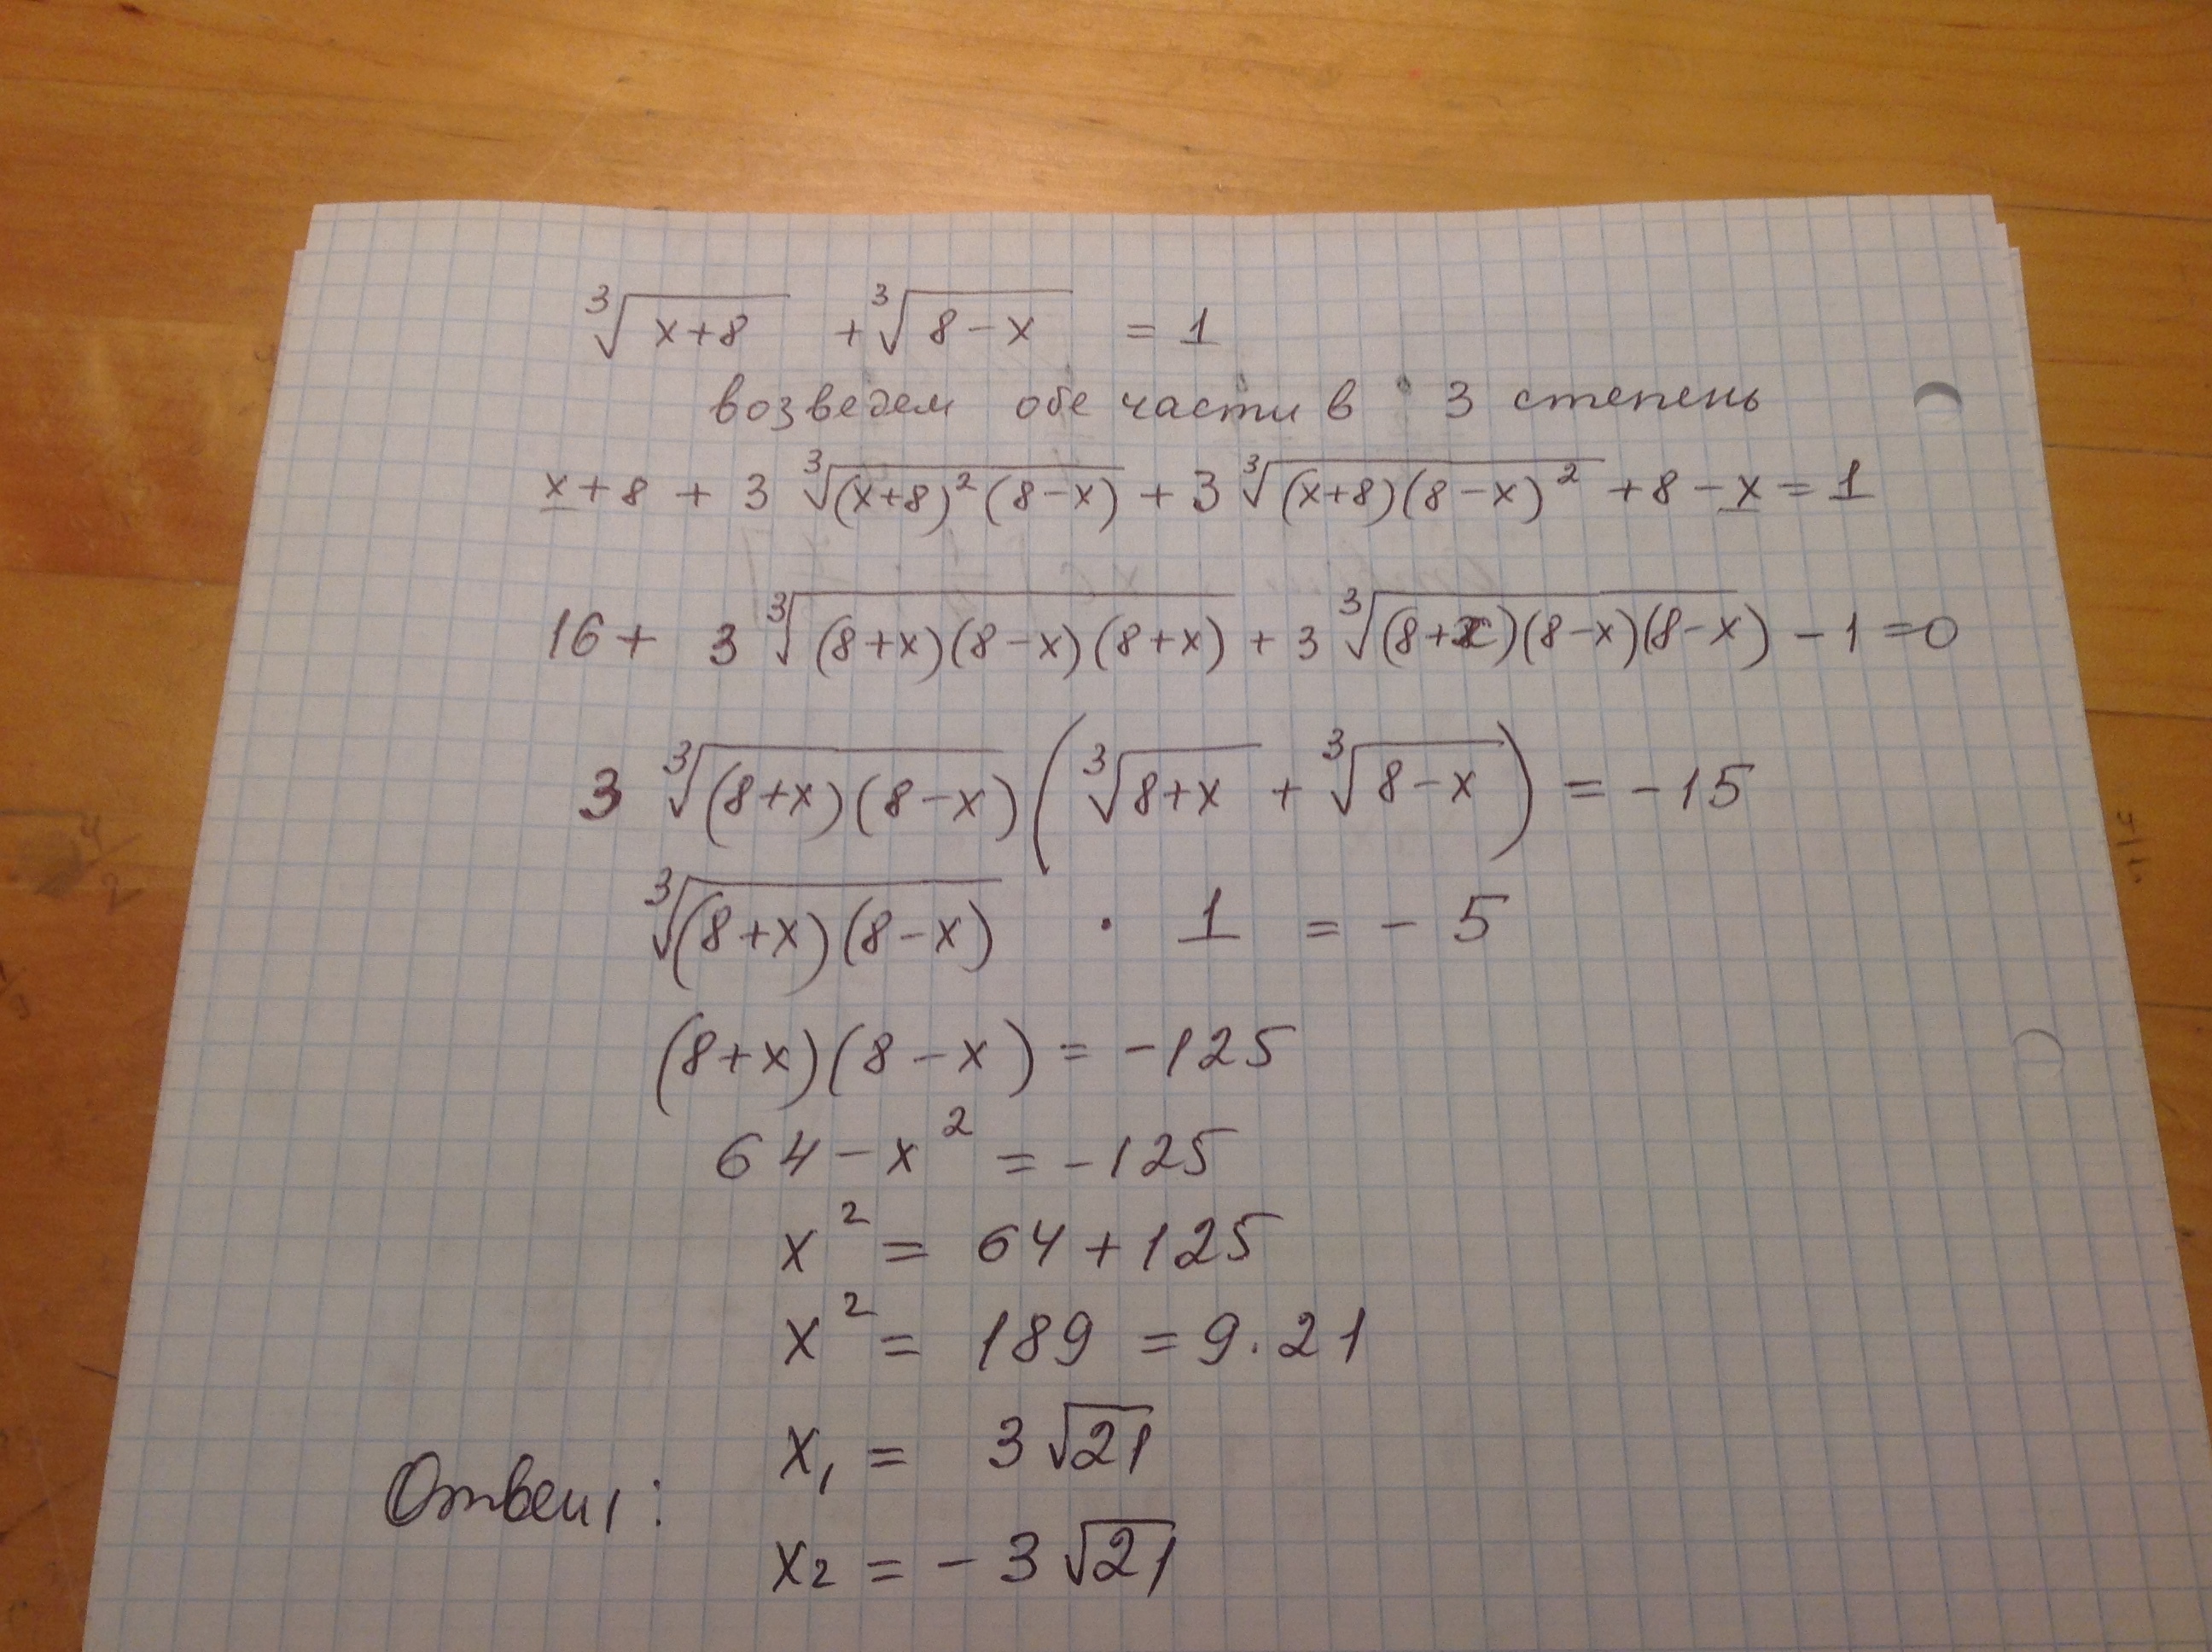 ∛(x+8) + ∛(8-x) = 1
возведем обе части в 3 степень
x+8 + 3 ∛((x+8)²(8-x)) + 3 ∛((x+8)(8-x)²) + 8 - x = 1
16 + 3 ∛((8+x)(8-x)(8+x)) + 3 ∛((8+x)(8-x)(8-x)) - 1 = 0
3 ∛((8+x)(8-x)) (∛(8+x) + ∛(8-x)) = -15
∛((8+x)(8-x)) · 1 = -5
(8+x)(8-x) = -125
64 - x² = -125
x² = 64 + 125
x² = 189 = 9·21
x₁ = 3√21
Ответ:
x₂ = -3√21